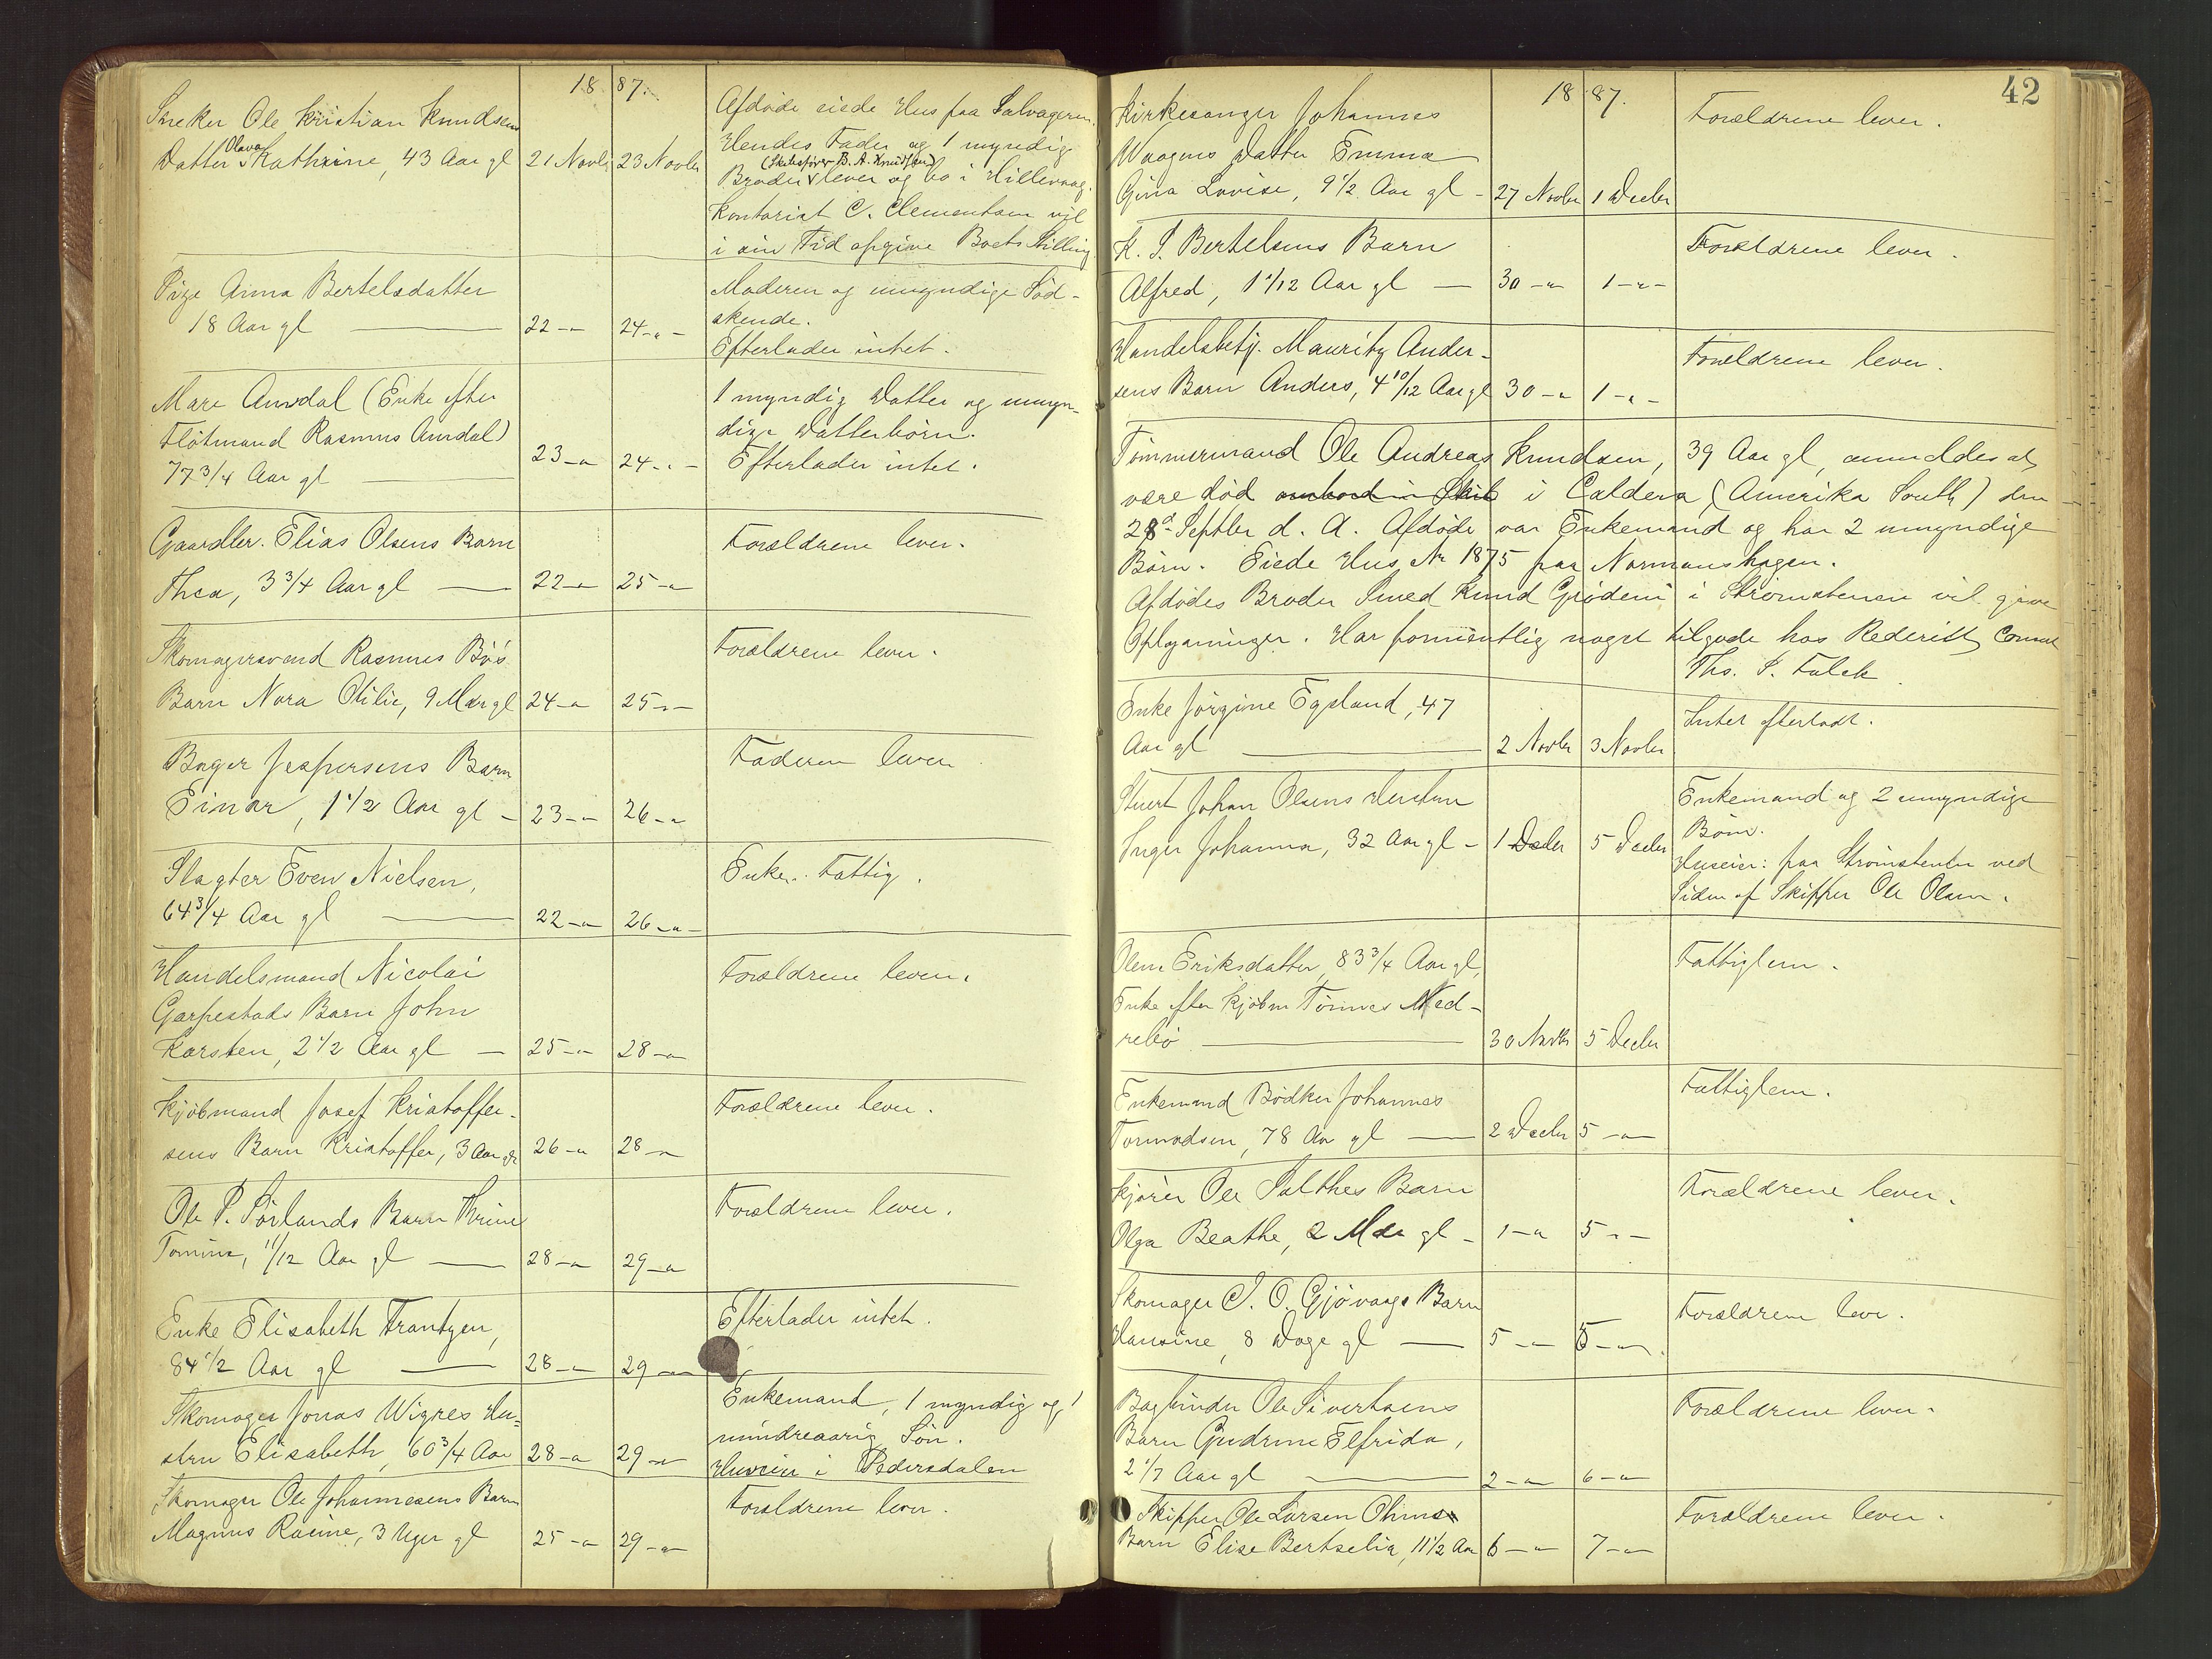 18 87.
Sneker Ole Kristian Knudsens
Datter Olava Kathrine, 43 Aar gl 21 Novbr 23 Novbr
Afdøde eiede Hus paa Salvageren.
Hendes Fader og 1 myndig
Broder (Skibsfører B. A. Knudsen) lever og bo i Hillevaag.
Kontorist C. Clementsen vil
i sin Tid opgive Boets Stilling.
Pige Anna Bertelsdatter
18 Aar gl 22 — " — 24 — " —
Moderen og umyndige Sød-
skende.
Efterlader intet.
Mare Aursdal (Enke efter
Flôtmand Rasmus Aursdal)
77 3/4 Aar gl 23 — " 24 — " —
1 myndig Datter og umyn-
dige Datterbørn.
Efterlader intet.
Gaardbr. Elias Olsens Barn
Thea, 3 3/4 Aar gl — 22 — " 25 — "
Forældrene lever.
Skomagersvend Rasmus Bø's
Barn Nora Otilie, 9 Mdr gl 24 — " 25 — " —
Forældrene lever.
Bager Jespersens Barn
Einar, 1 1/2 Aar gl — 23 — " 26 — "
Faderen lever
Slagter Even Nielsen,
64 3/4 Aar gl — 22 — " 26 — "
Enke. Fattig.
Handelsmand Nicolai
Garpestads Barn John
Karsten, 2 1/2 Aar gl — 25 — " 28 — "
Forældrene lever.
Kjøbmand Josef Kristoffer-
sens Barn Kristoffer, 3 Aar gl 26 — " 28 — "
Forældrene lever.
Ole P. Sørlands Barn Thrine
Tomine, 11/12 Aar gl — 28 — " 29 — "
Forældrene lever.
Enke Elisabeth Trantzen,
84 1/2 Aar gl — 28 — " 29 — "
Efterlader intet.
Skomager Jonas Wigres Hu-
stru Elisabeth, 60 3/4 Aar 28 — " 29 — "
Enkemand, 1 myndig og 1
mindreaarig Søn.
Huseier i Pedersdalen
Skomager Ole Johannesens Barn
Magnus Rasine, 3 Uger gl 25 — " 29 — "
Forældrene lever.
42
18 87.
Kirkesanger Johannes
Waagens Datter Emma
Gina Lovise, 9 1/2 Aar gl — 27 Novbr 1 Decbr
Forældrene lever.
K. S. Bertelsens Barn
Alfred, 1 1/12 Aar gl — 30 — " 1 — " —
Forældrene lever.
Handelsbetj. Mauritz Ander-
sens Barn Anders, 4 10/12 Aar gl 30 — " 1 — " —
Forældrene lever.
Tømmermand Ole Andreas Knudsen, 39 Aar gl, anmeldes at
være død ombord i Skib i Caldera (Amerika South) den
28d Septbr d. A. Afdøde var Enkemand og har 2 umyndige
Børn. Eiede Hus No 1875 paa Normanshagen.
Afdødes Broder Smed Knud Grødem i Strømstenen vil give
Oplysninger. Har formientlig noget tilgode hos Rederiet, Consul
Ths. S. Falck
Enke Jørgine Egeland, 47
Aar gl — 2 Novbr 3 Novbr
Intet efterladt.
Stuert Johan Olsens Hustru
Inger Johanna, 32 Aar gl — 1 Decbr 5 Decbr
Enkemand og 2 umyndige
Børn.
Huseier: paa Strømstenen ved
Siden af Skipper Ole Olsen.
Olene Eriksdatter, 83 3/4 Aar gl,
Enke efter Kjøbm Tønnes Ned-
rebø — 30 Novbr 5 Decbr
Fattiglem.
Enkemand Bødker Johannes
Tormodsen, 78 Aar gl — 2 Decbr 5 — " —
Fattiglem.
Kjører Ole Salthes Barn
Olga Beathe, 2 Mdr gl — 1 — " 5 — " —
Forældrene lever.
Skomager S. O. Gjøvaags Barn
Hansine, 8 Dage gl — 5 — " 5 — "
Forældrene lever.
Bogbinder Ole Sivertsens
Barn Gudrun Elfrida,
2 1/7 Aar gl — 2 — " 6 — "
Forældrene lever.
Skipper Ole Larsen Ohms
Barn Elise Bertselia, 11 1/2 Aar 6 — " 7 — "
Forældrene lever.